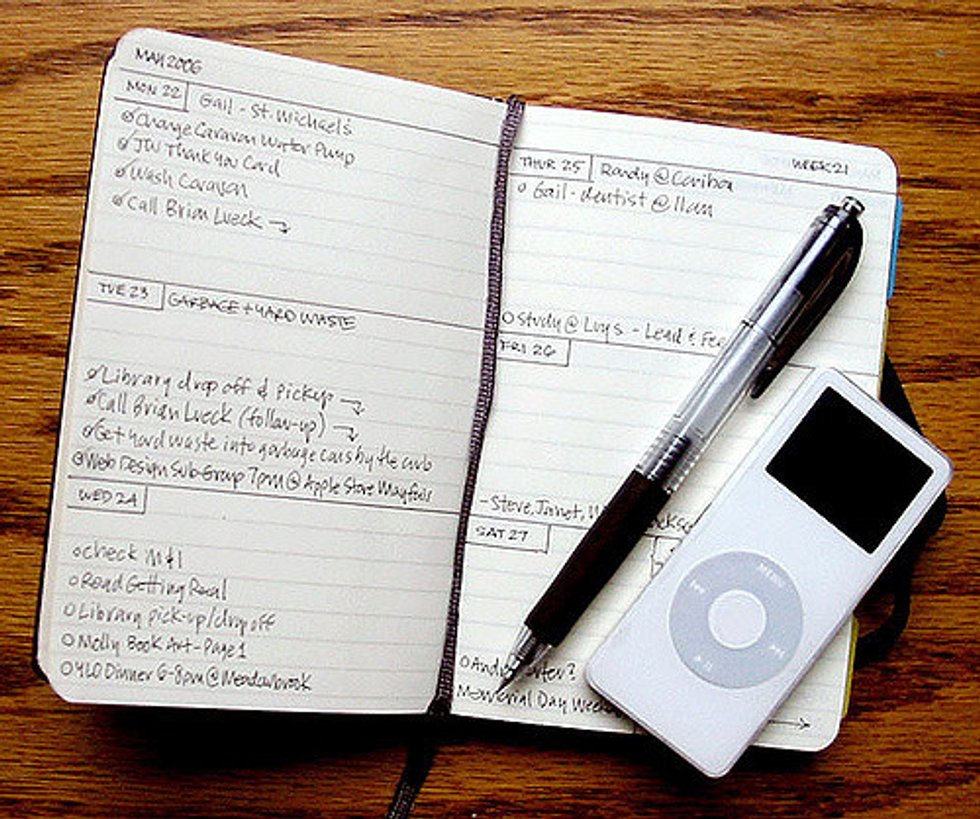 MAY 2006
MON 22 Gail - St. Michael's
Change Caravan Water Pump
Thank You Card
Wash Caravan
Call Brian Lueck →
TUE 23 GARBAGE + YARD WASTE
Library drop off & pickup →
Call Brian Lueck (follow-up) →
Get yard waste into garbage cans by the curb
Web Design Sub-Group 7pm @ Apple Store Mayfair
WED 24
check M&I
Read Getting Real
Library pick-up/drop off
Molly Book Art - Page 1
YLO Dinner 6-8pm @ Meadowbrook
WEEK 21
THUR 25 Randy @ Caribou
Gail - dentist @ 11am
Study @ Luy's - Lead &
FRI 26
- Steve, Janet,
SAT 27
Andy
Memorial Day
MENU